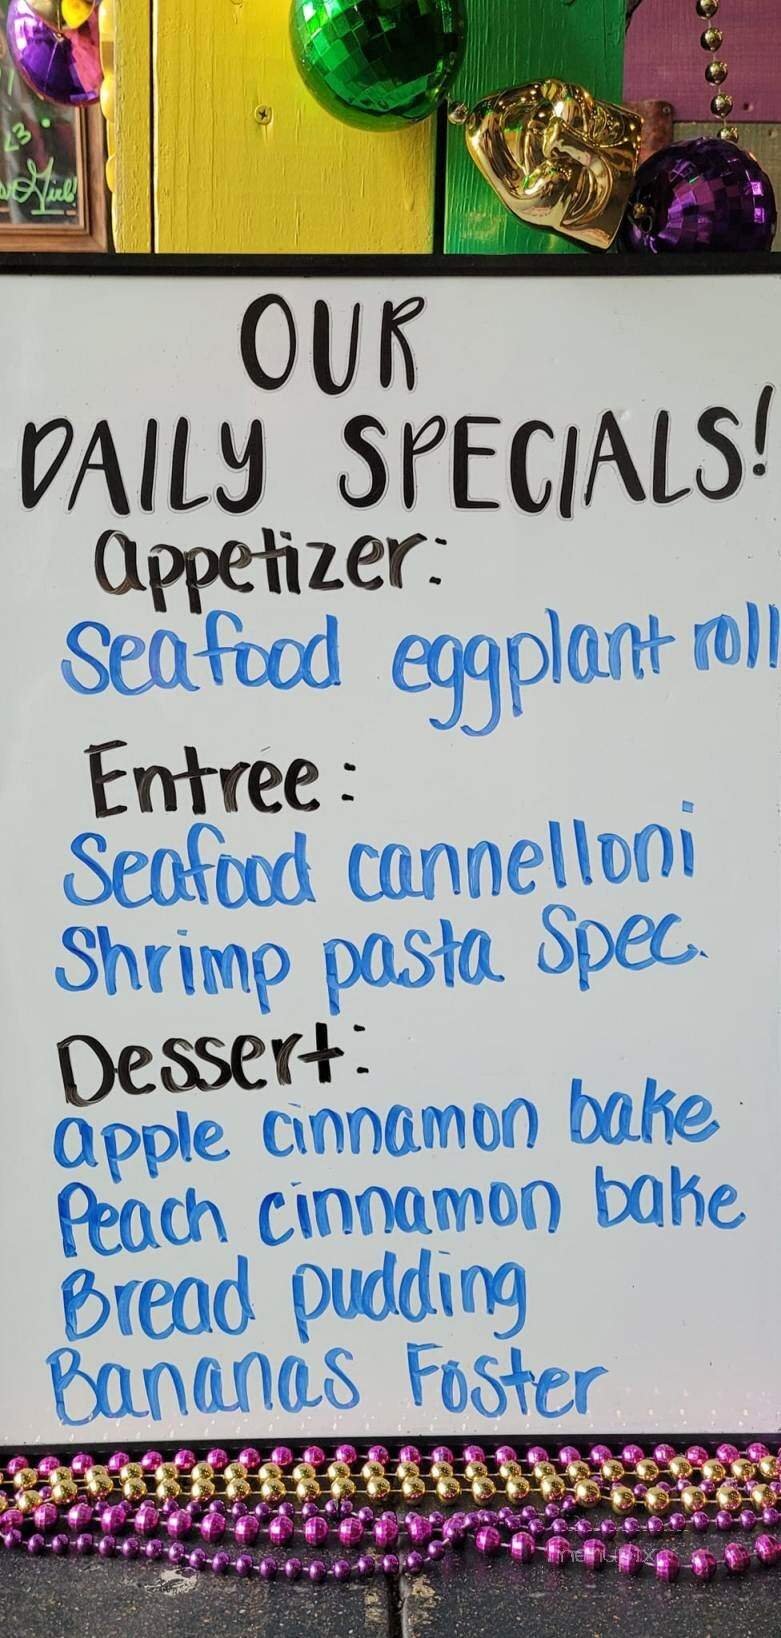 OUR
DAILY SPECIALS!
Appetizer:
Seafood eggplant roll
Entree:
Seafood cannelloni
Shrimp pasta Spec.
Dessert:
apple cinnamon bake
Peach cinnamon bake
Bread pudding
Bananas Foster
menupix